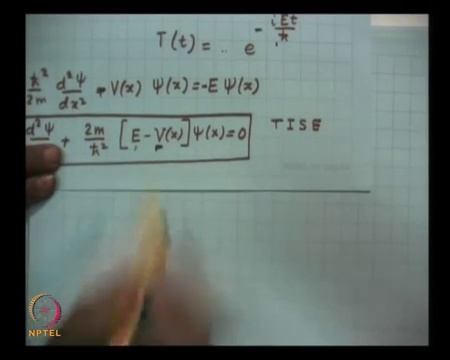 T(t) = .. e^{-iEt/ħ}
ħ²/2m d²Ψ/dx² - V(x) Ψ(x) = -E Ψ(x)
d²Ψ + 2m/ħ² [E - V(x)] Ψ(x) = 0 TISE
NPTEL